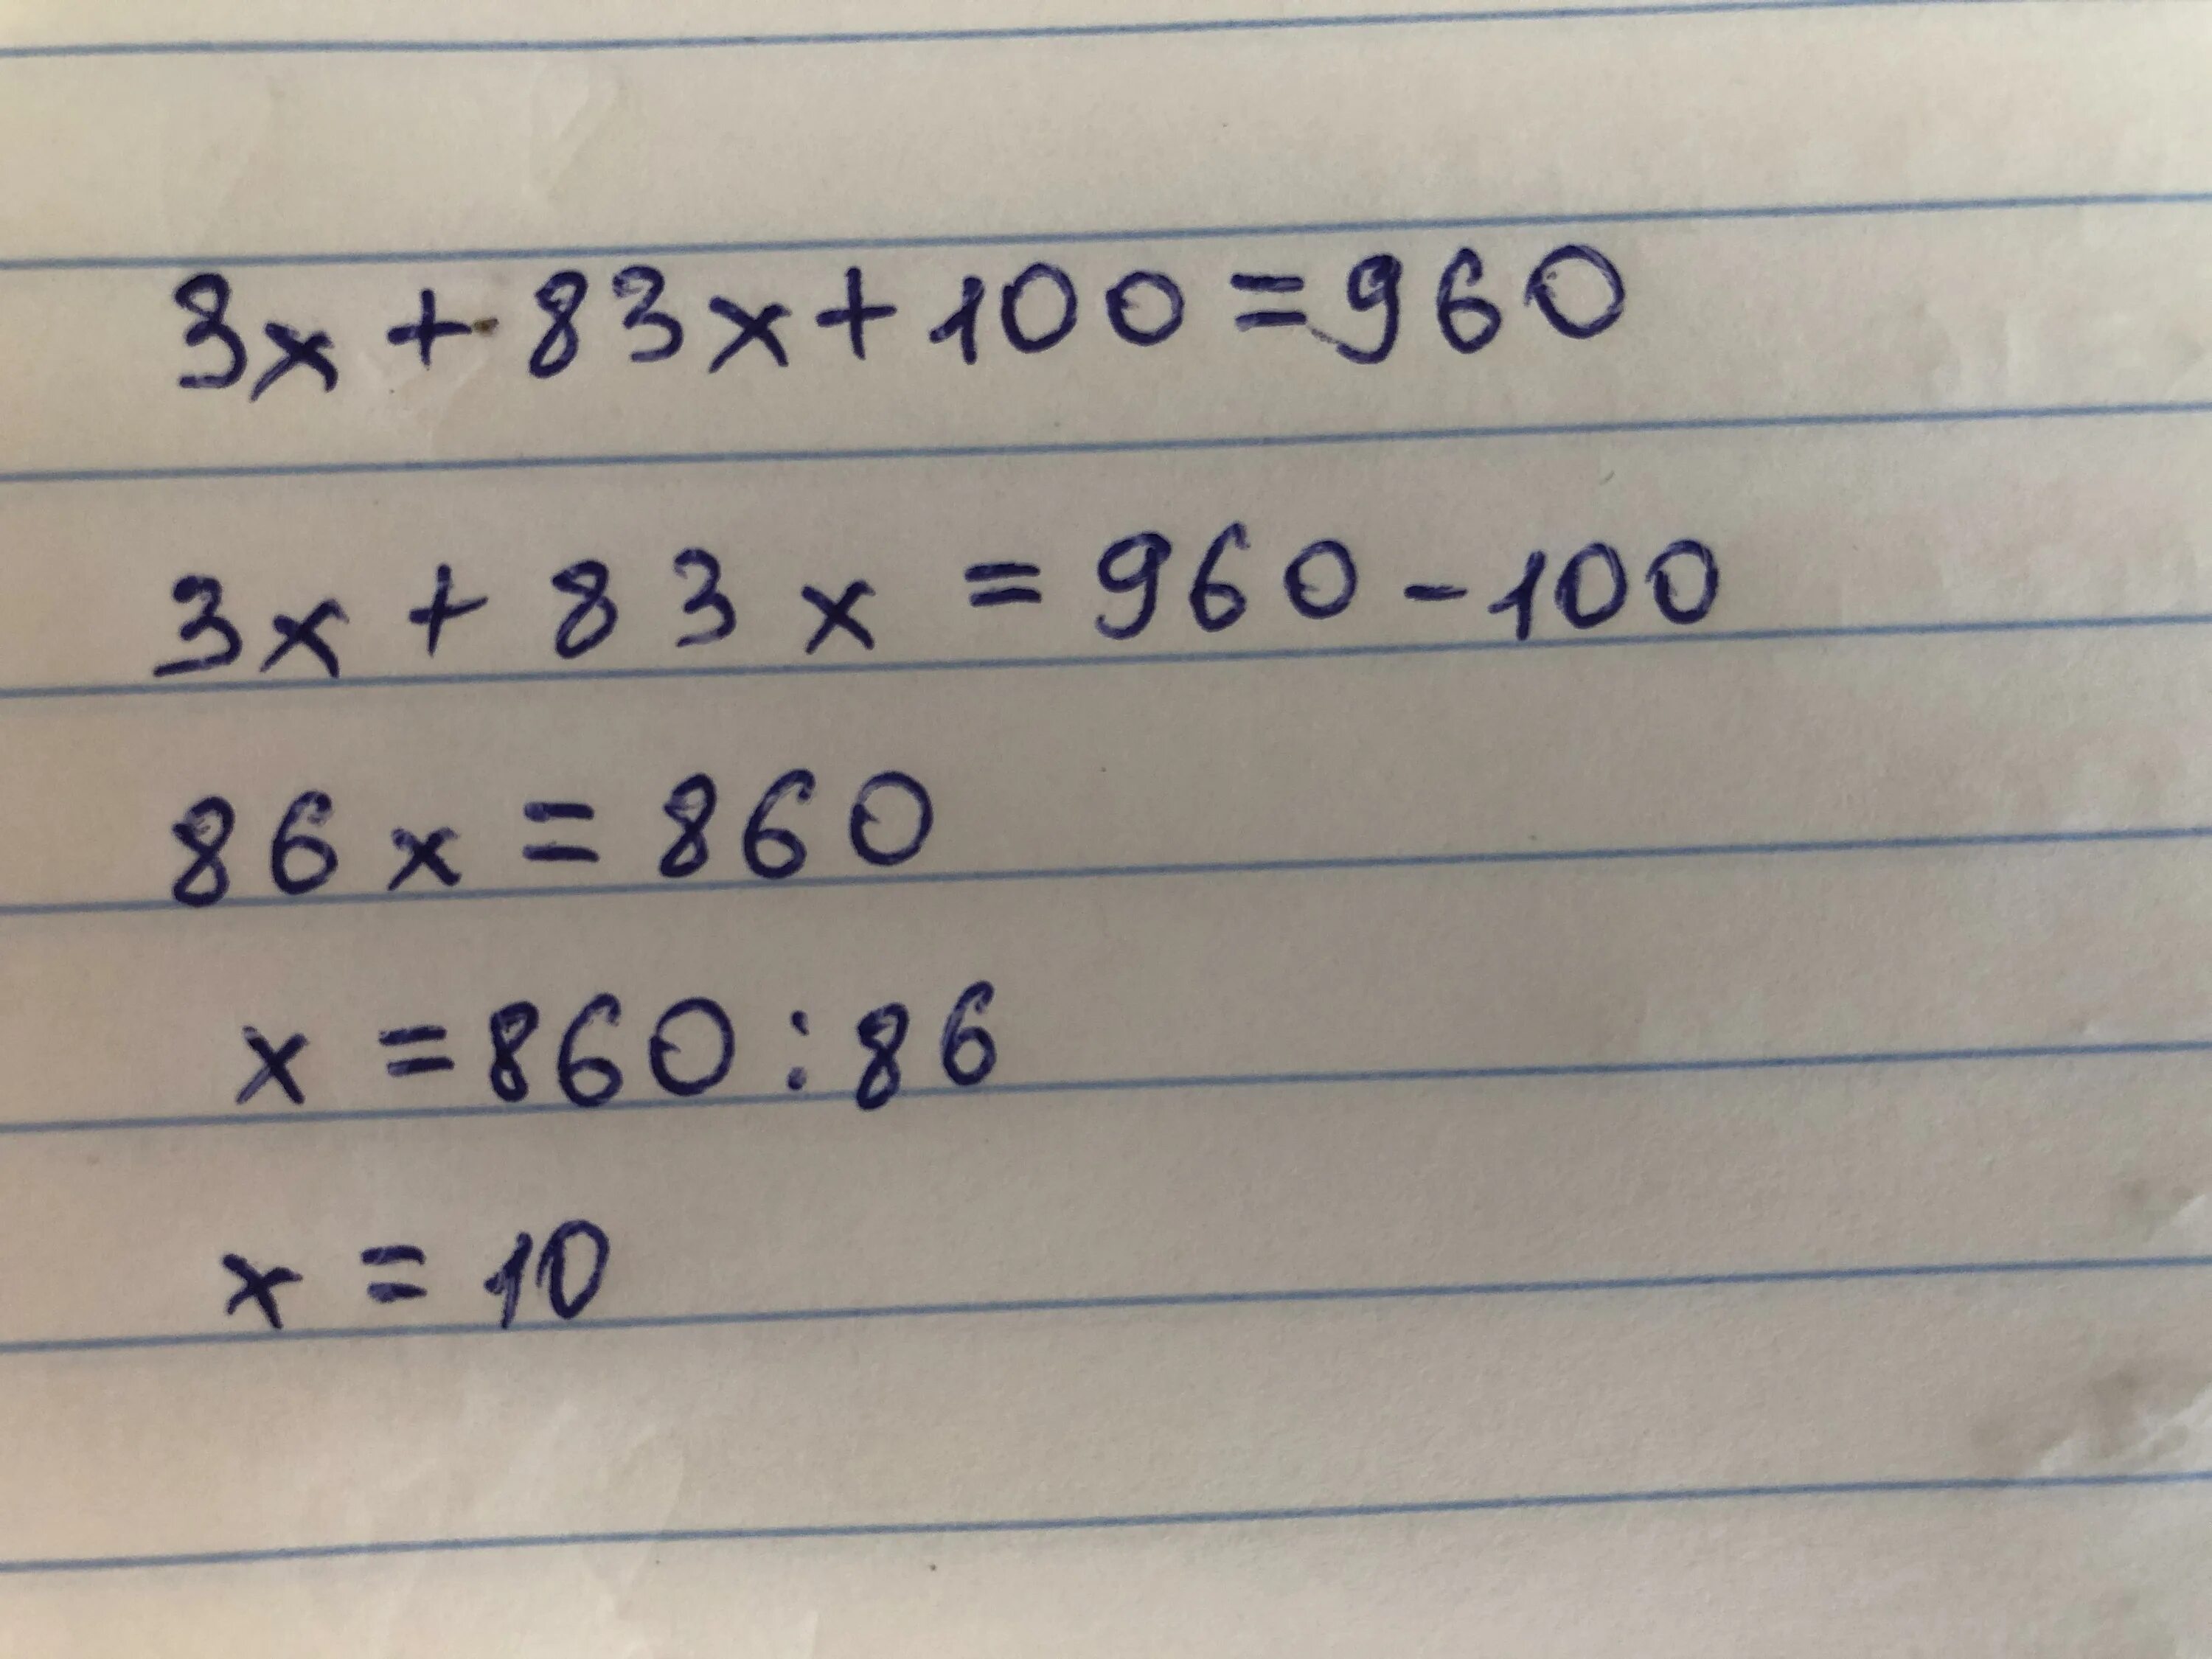 3x + 83x + 100 = 960
3x + 83x = 960 - 100
86x = 860
x = 860 : 86
x = 10